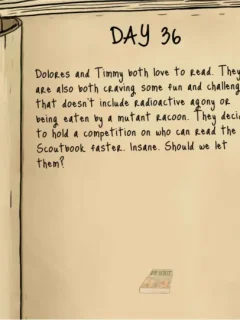 DAY 36
Dolores and Timmy both love to read. They
are also both craving some fun and challeng
that doesn't include radioactive agony or
being eaten by a mutant racoon. They deci
to hold a competition on who can read the
Scoutbook faster. Insane. Should we let
them?